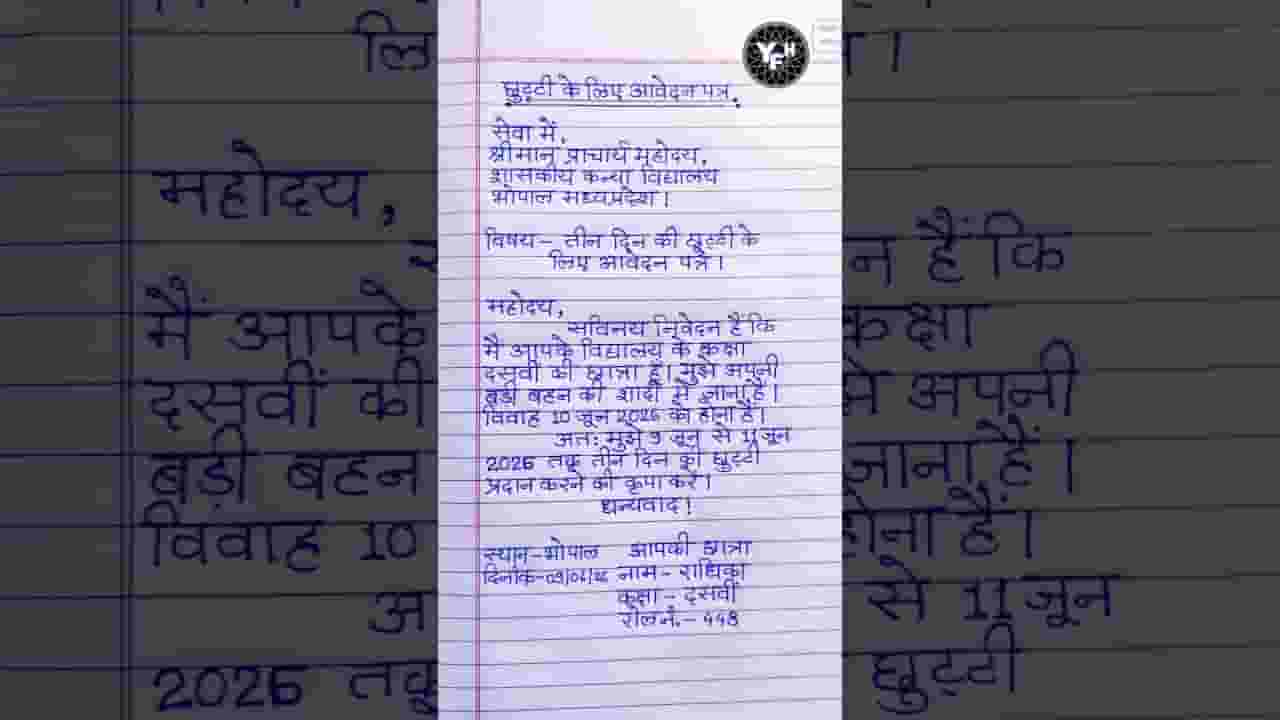 छुट्टी के लिए आवेदन पत्र
सेवा में,
श्रीमान प्राचार्य महोदय,
शासकीय कन्या विद्यालय
भोपाल मध्यप्रदेश।
विषय- तीन दिन की छुट्टी के
लिए आवेदन पत्र।
महोदय,
सविनय निवेदन हैं कि
मैं आपके विद्यालय के कक्षा
दसवीं की छात्रा हूं। मुझे अपनी
बड़ी बहन की शादी में जाना हैं।
विवाह 10 जून 2026 को होना हैं।
अतः मुझे 9 जून से 11 जून
2026 तक तीन दिन की छुट्टी
प्रदान करने की कृपा करें।
धन्यवाद।
स्थान-भोपाल आपकी छात्रा
दिनांक- नाम- राधिका
कक्षा- दसवीं
रोल नं.-
YFH